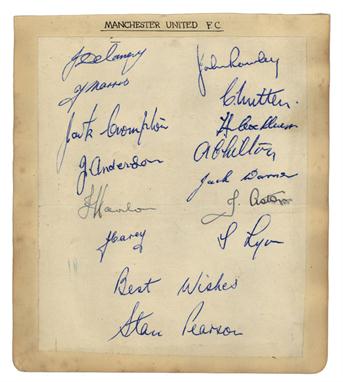 MANCHESTER UNITED F.C
J Delaney
J Morris
Jack Crompton
J Anderson
J Hanlon
J Carey
John Rowley
C Mitten.
H Cockburn
A Chilton
Jack Warner
J. Aston
S Lynn
Best Wishes
Stan Pearson